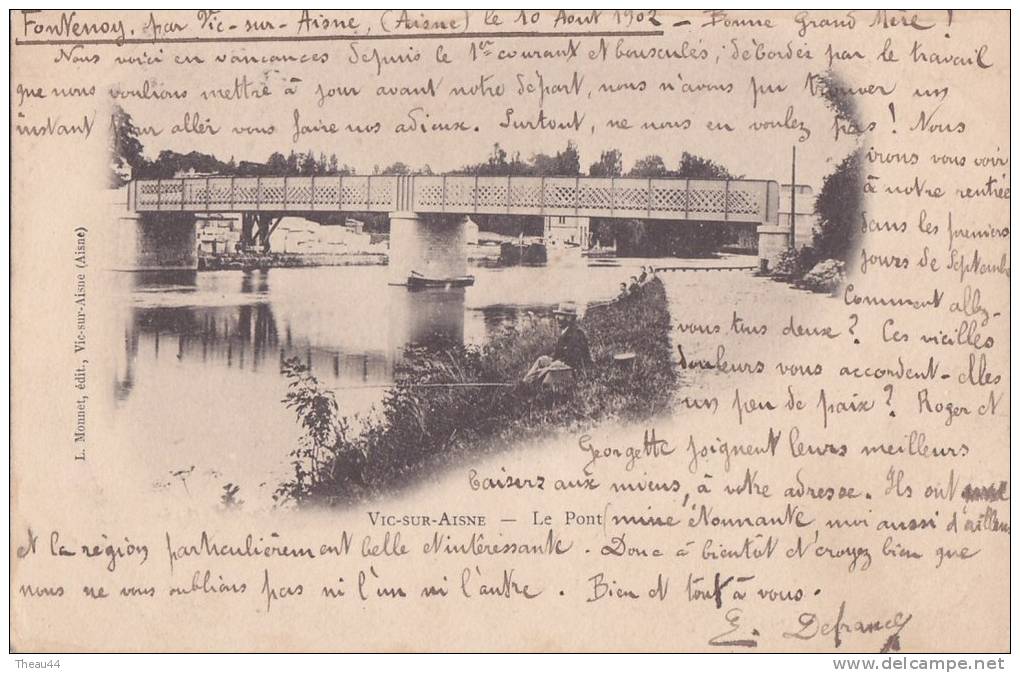 Fontenoy, par Vic-sur-Aisne, (Aisne) le 10 Août 1902 – Bonne Grand Mère !
Nous voici en vancances depuis le 1er courant et bousculés, débordés par le travail
que nous voulions mettre à jour avant notre départ, nous n'avons pu trouver un
instant pour aller vous faire nos adieux. Surtout, ne nous en voulez pas ! Nous
irons vous voir
à notre rentrée
dans les premiers
jours de Septembre
Comment allez-
vous tous deux ? Ces vieilles
douleurs vous accordent-elles
un peu de paix ? Roger et
Georgette joignent leurs meilleurs
baisers aux miens, à votre adresse. Ils ont
VIC-SUR-AISNE — Le Pont
(mine étonnante, moi aussi d'ailleurs
et la région particulièrement belle et intéressante. Donc à bientôt et croyez bien que
nous ne vous oublions pas ni l'un ni l'autre. Bien et tout à vous.
E. Defrance
L. Monnet, édit., Vic-sur-Aisne (Aisne)
Theau44
www.delcampe.net